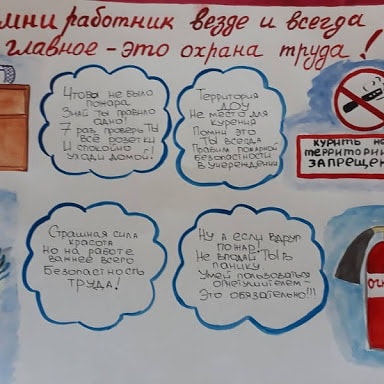 мни работник везде и всегда
главное - это охрана труда!
Чтобы не было
пожара
Знай ты правило
одно!
7 раз проверь ты
все розетки
И спокойно
уходи домой.
Территория
ДОУ
Не место для
курения
Помни это
ты всегда
Правим пожарной
безопасности
в учереждении
курить на
территории
запрещен
Страшная сила
красота
Но на работе
важнее всего
Безопасность
труда!
Ну а если вдруг
пожар!
Не впадай ты в
панику
Умей пользоваться
огнетушителем-
Это обязательно!!!
ог